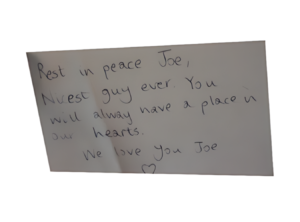 Rest in peace Joe,
Nicest guy ever You
will alway have a place in
our hearts.
We love you Joe